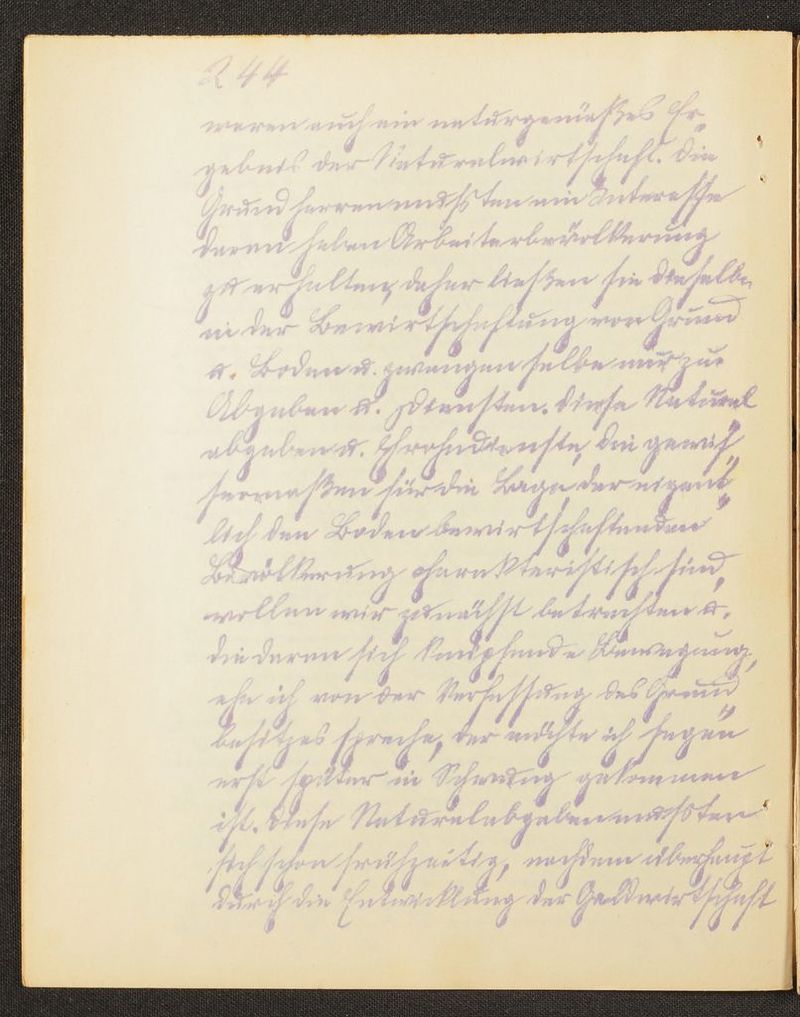 244
waren auch ein naturgemäßes Er-
gebnis der Naturalwirtschaft. Die
Grundherren mußten ein Interesse
daran haben Arbeiterbevölkerung
zu erhalten, daher ließen sie dieselbe
in der Bewirtschaftung von Grund
u. Boden u. zwangen selbe nur zu
Abgaben u. Diensten. Diese Natural
abgaben u. Frohndienste, die gewis-
sermaßen für die Lage der eigent-
lich den Boden bewirtschaftenden
Bevölkerung charakteristisch sind,
wollen wir zunächst betrachten u.
die daran sich knüpfende Bewegung,
ehe ich von der Verfassung des Grund-
besitzes spreche, der möchte ich sagen
erst später in Schwung gekommen
ist. Diese Naturalabgaben mußten
sich schon frühzeitig, nachdem überhaupt
durch die Entwicklung der Geldwirtschaft